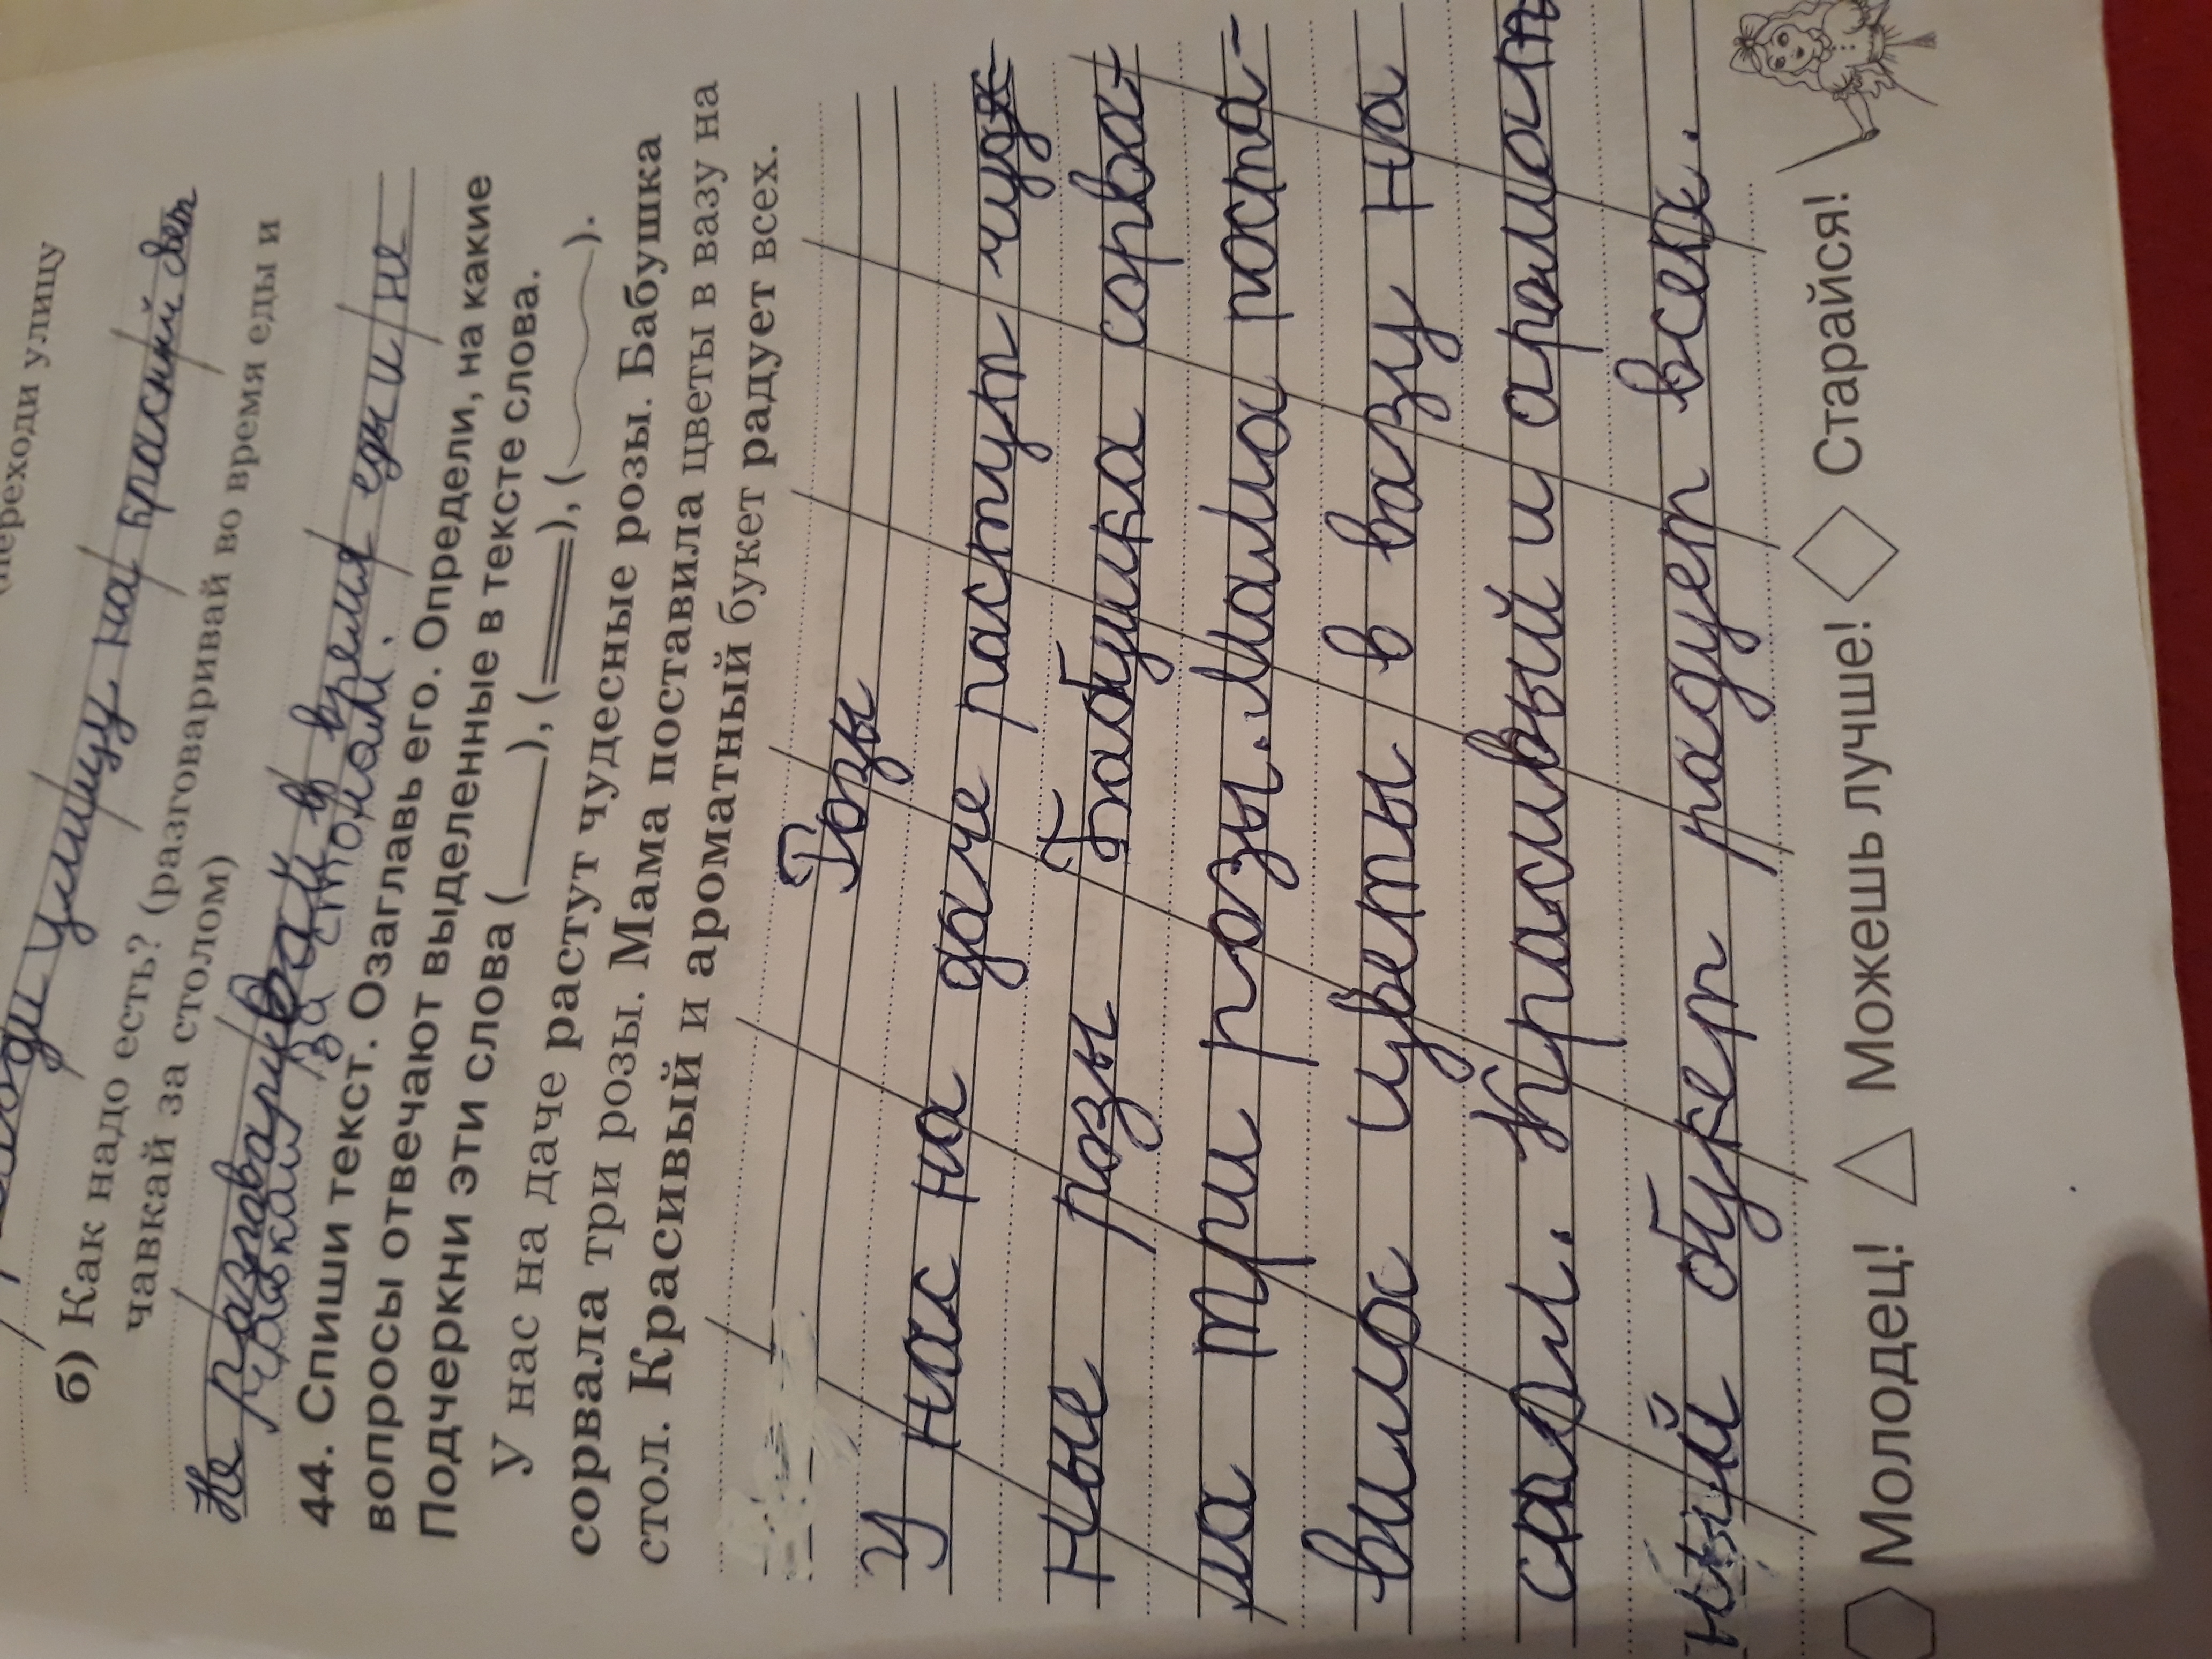 (переходи улицу
ди улицу на красний свет
б) Как надо есть? (разговаривай во время еды и
чавкай за столом)
Не разговаривай в время еды и не
чавкай за столом.
44. Спиши текст. Озаглавь его. Определи, на какие
вопросы отвечают выделенные в тексте слова.
Подчеркни эти слова (___), (===), (~~~).
У нас на даче растут чудесные розы. Бабушка
сорвала три розы. Мама поставила цветы в вазу на
стол. Красивый и ароматный букет радует всех.
Розы
У нас на даче растут чудес
ные розы Бабушка сорва-
ла три розы. Мама поста-
вила цветы в вазу на
стол. Красивый и аромат
ный букет радует всех.
Молодец! Можешь лучше! Старайся!